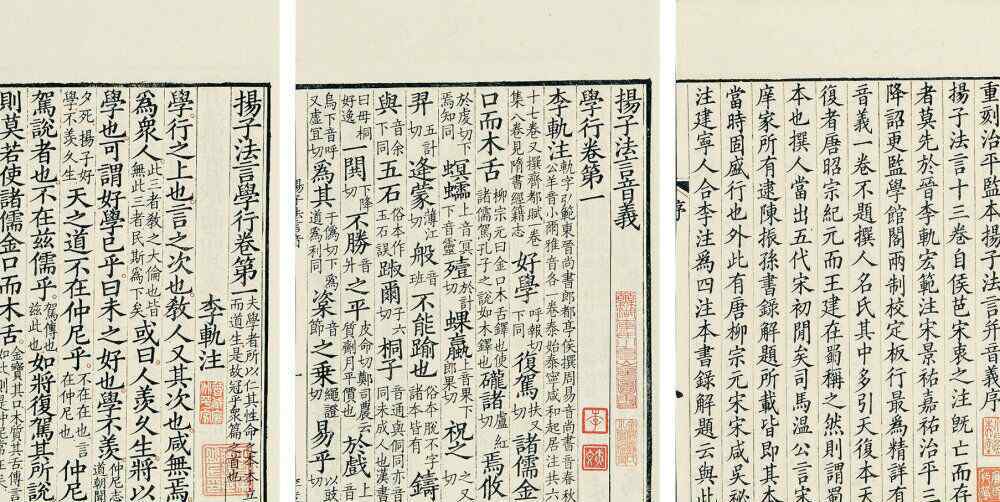 重刻治平監本揚子法言并音義序
揚子法言十三卷自侯芭宋衷之注旣亡而
者莫先於晉李軌宏範注宋景祐嘉祐治平三
降詔更監學館閣兩制校定板行最爲精詳有
音義一卷不題撰人名氏其中多引天復本天
復者唐昭宗紀元而王建在蜀稱之然則謂蜀
本也撰人當出五代宋初閒矣司馬温公言宋
庠家所有逮陳振孫書録解題所載皆即其本
當時固盛行也外此有唐柳宗元宋宋咸吳祕
注建寧人合李注爲四注本書録解題云與此
序
揚子法言音義
學行卷第一
李軌注軌字弘範東晉尚書郎都亭侯撰周易音尚書音春秋公羊音小爾雅音各一卷泰始泰寧咸和起居注共六
十七卷又撰齊都賦一卷集八卷見隋書經籍志好學呼報切下同復駕扶又切諸儒金
口而木舌柳宗元曰金口木舌鐸也使諸儒駕孔子之說如木鐸也礲諸盧紅切焉攸
於虔切下焉知同螟蠕上音冥下音靈殪於計切蜾蠃上音果下郎果切祝之又
羿五計切逢蒙薄江切般音班不能踰也俗本脫不字諸本皆有鑄
與音余下同五石俗本作玉石誤踧爾子六切桐子音通與侗同亦音同未成人也漢書
曰毋桐好逸一閧下降切不勝音升之平皮命切鄭司農云質劑月平價也於戲上音
烏下音呼又虛宜切爲其于僞切下爲道爲利同楶音節之乘繩證切易乎以豉切
揚子法言學行卷第一夫學者所以仁其性命之本本立而道生是故冠乎衆篇之首也
李軌注
學行之上也言之次也敎人又其次也咸無焉
爲衆人此三者敎之大倫也皆無此三者民斯爲下矣或曰人羨久生將以
學也可謂好學已乎曰未之好也學不羨仲尼志道朝聞
夕死揚子好學不羨久生天之道不在仲尼乎不在在也言在仲尼也仲尼
駕說者也不在兹儒乎駕傳也兹此也如將復駕其所說
則莫若使諸儒金口而木舌金寶其口木質其舌傳言如此則是仲尼常在矣